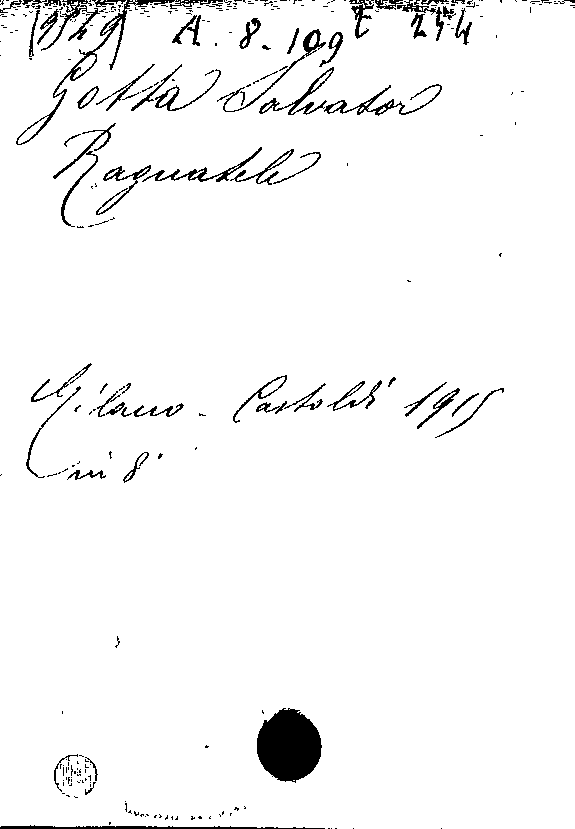 (9529) A. 8. 109 t 254
Gotta Salvator
Ragnatele
Milano - Castoldi 1915
in 8°